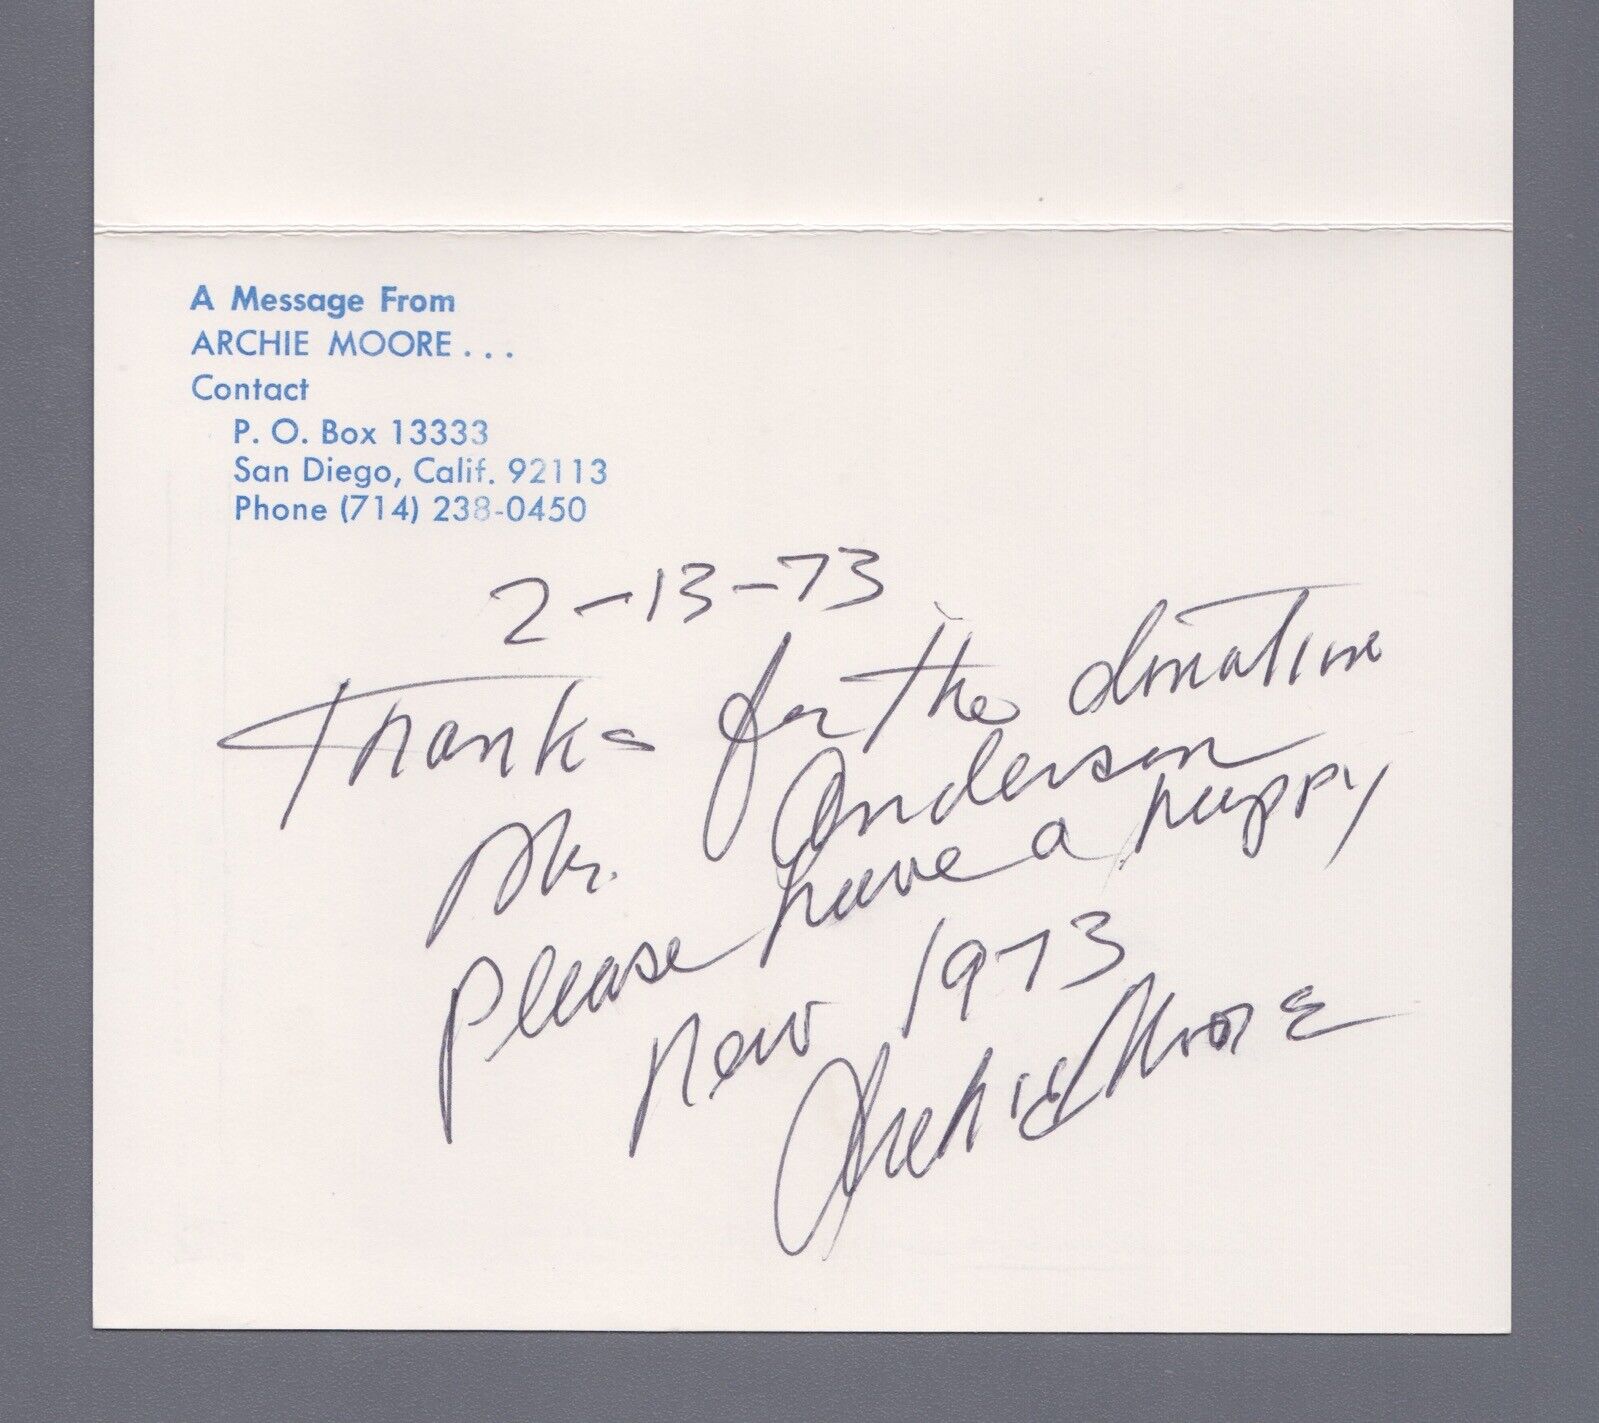 A Message From
ARCHIE MOORE...
Contact
P. O. Box 13333
San Diego, Calif. 92113
Phone (714) 238-0450
2-13-73
Thanks for the donation
Mr. Anderson
please have a happy
new 1973
Archie Moore